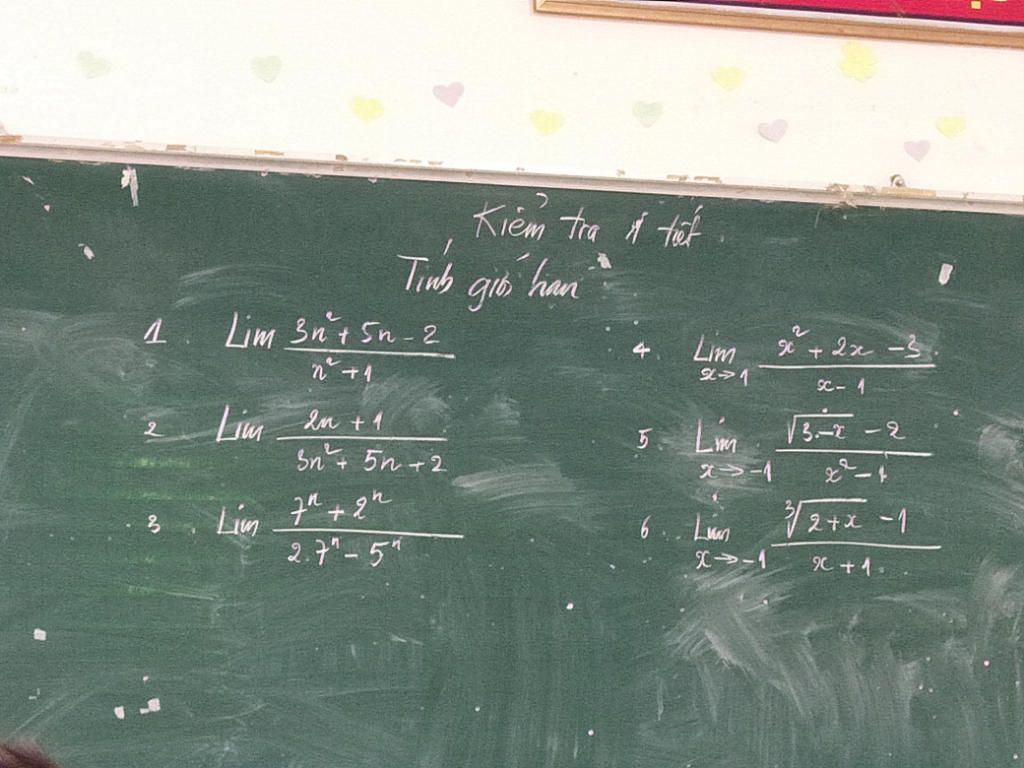 Kiểm tra 1 tiết
Tính giới hạn
1. Lim (3n² + 5n - 2)/(n² + 1)
2 Lim (2n + 1)/(3n² + 5n + 2)
3 Lim (7ⁿ + 2ⁿ)/(2.7ⁿ - 5ⁿ)
4 Lim x→1 (x² + 2x - 3)/(x - 1)
5 Lim x→-1 (√(3-x) - 2)/(x² - 1)
6. Lim x→-1 (∛(2+x) - 1)/(x + 1)